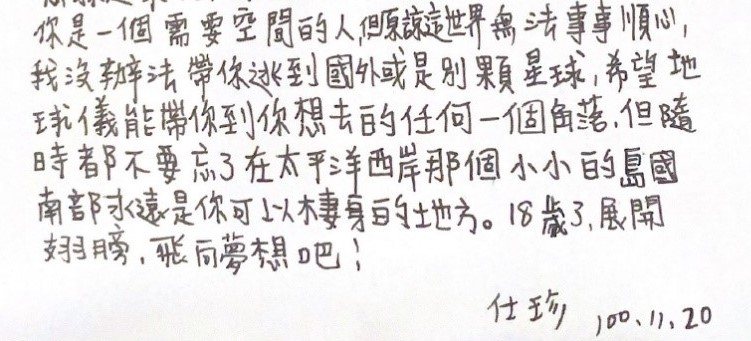 你是一個需要空間的人,但原諒這世界無法事事順心,
我沒辦法帶你逃到國外或是別顆星球,希望地
球儀能帶你到你想去的任何一個角落,但隨
時都不要忘了在太平洋西岸那個小小的島國
南部永遠是你可以棲身的地方。18歲了,展開
翅膀,飛向夢想吧!
仕珍 100.11.20